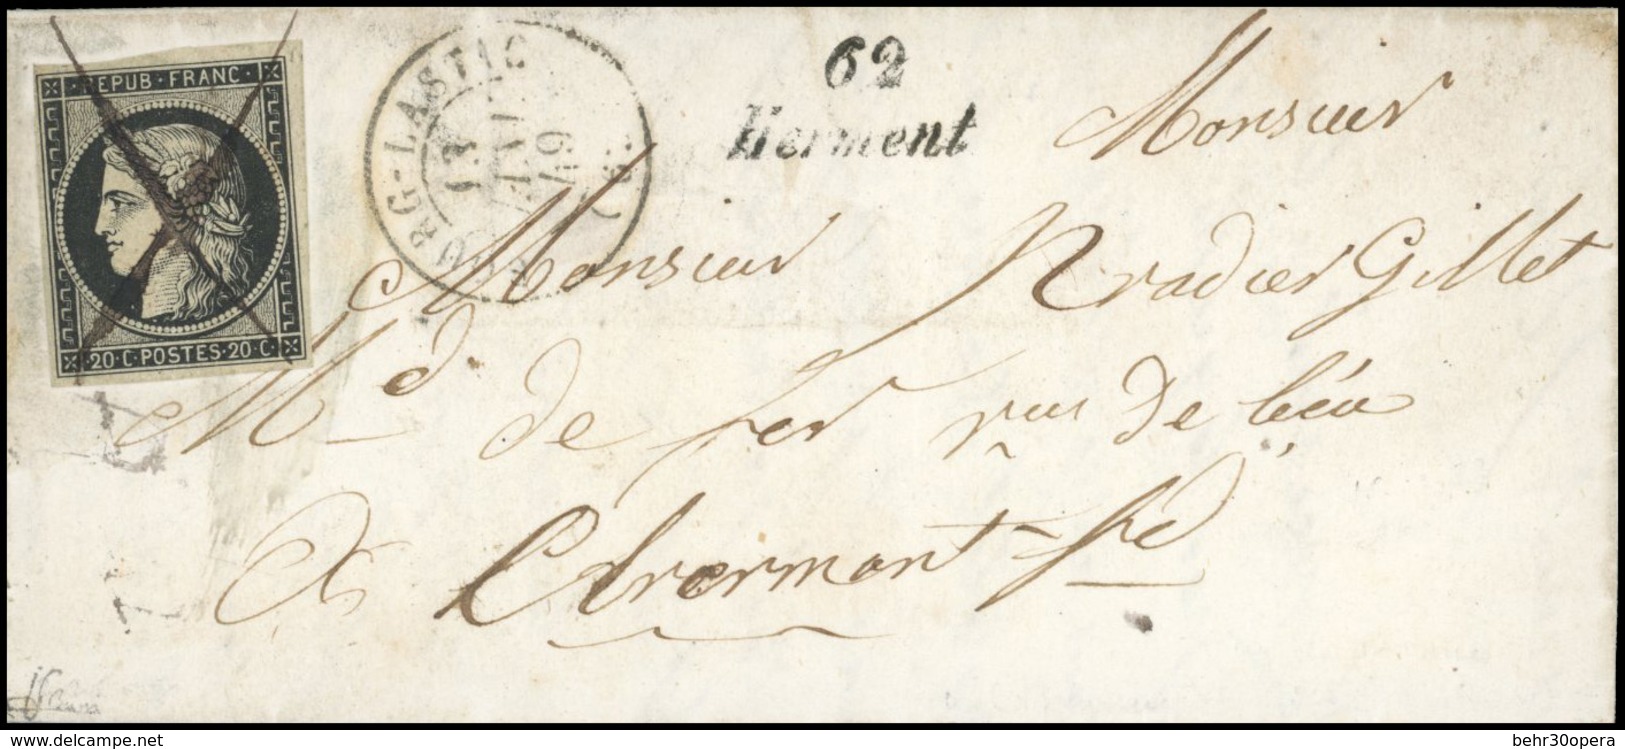 REPUB·FRANC·
20·C·POSTES·20·C·
BOURG-LASTIC
17
JANV
49
62
Herment
Monsieur
Monsieur Pradier Gillet
Md de fer rue de
A Clermont-fd
www.delcampe.net
behr30opera